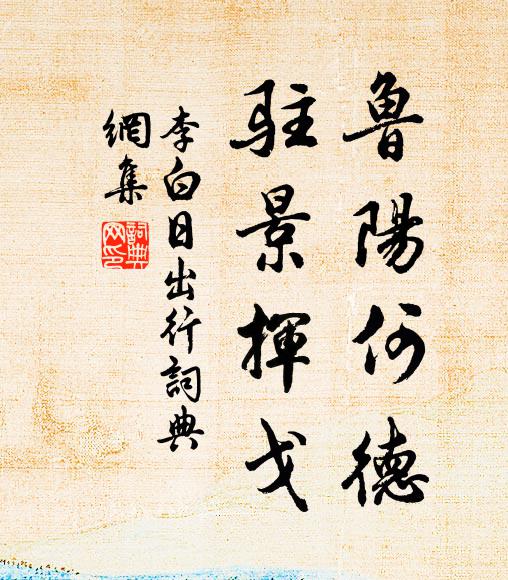 魯陽何德
駐景揮戈
李白日出行詞典
網集
詞典
网印